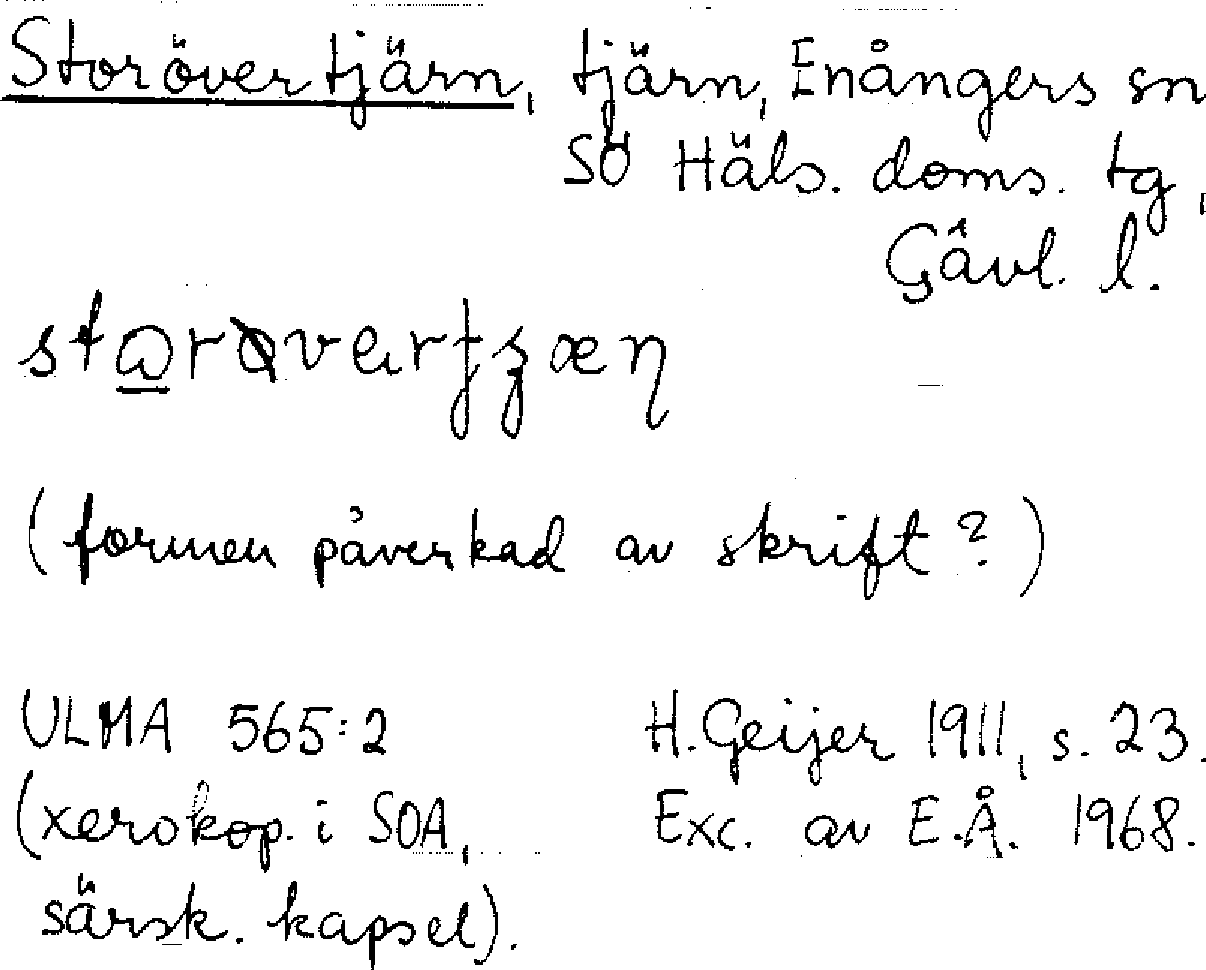 Storövertjärn, tjärn, Enångers sn
SÖ Häls. doms. tg,
Gävl. l.
(formen påverkad av skrift?)
ULMA 565:2 H. Geijer 1911, s. 23.
(xerokop. i SOA, Exc. av E.Å. 1968.
särsk. kapsel).